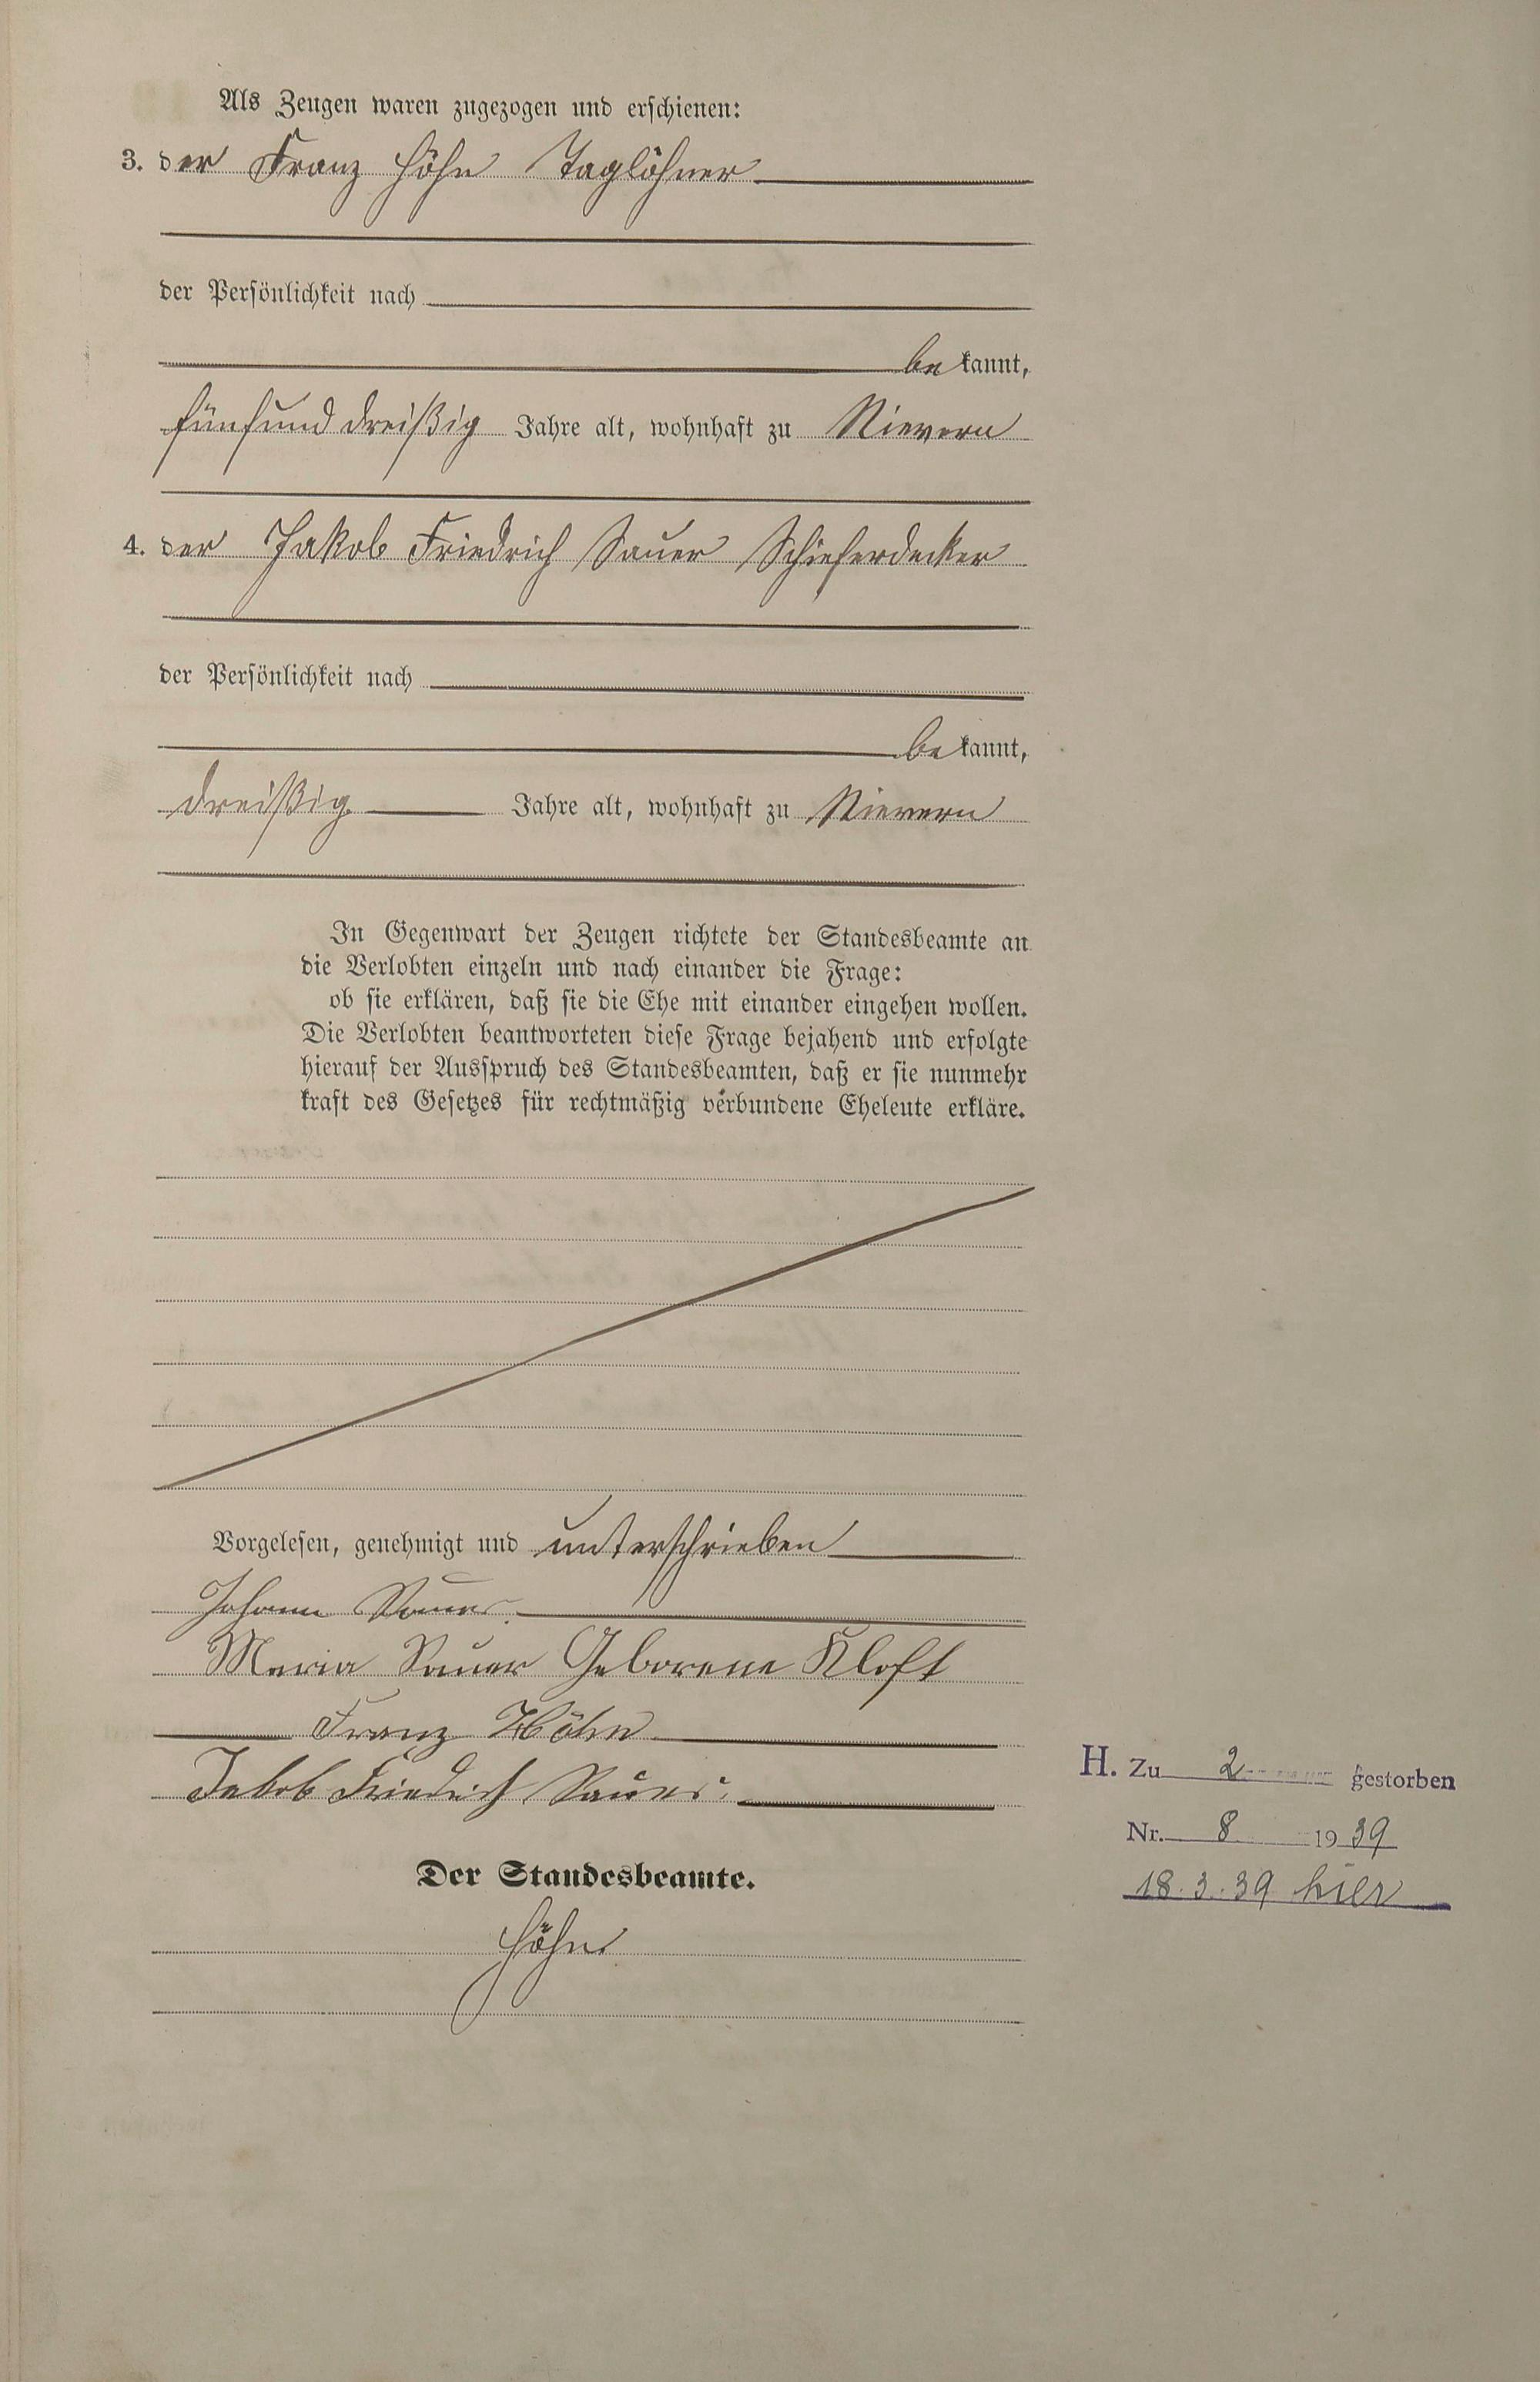 Als Zeugen waren zugezogen und erschienen:
3. der Franz Höhn Taglöhner
der Persönlichkeit nach
be kannt,
fünfund dreißig Jahre alt, wohnhaft zu Nievern
4. der Jakob Friedrich Sauer Schieferdecker
der Persönlichkeit nach
be kannt,
dreißig Jahre alt, wohnhaft zu Nievern
In Gegenwart der Zeugen richtete der Standesbeamte an
die Verlobten einzeln und nach einander die Frage:
ob sie erklären, daß sie die Ehe mit einander eingehen wollen.
Die Verlobten beantworteten diese Frage bejahend und erfolgte
hierauf der Ausspruch des Standesbeamten, daß er sie nunmehr
kraft des Gesetzes für rechtmäßig verbundene Eheleute erkläre.
Vorgelesen, genehmigt und unterschrieben
Johann Sauer.
Maria Sauer Geborene Kloft
Franz Höhn
Jakob Friedrich Sauer.
Der Standesbeamte.
Höhn
H. Zu 2 gestorben
Nr. 8 1939
18.3.39 hier